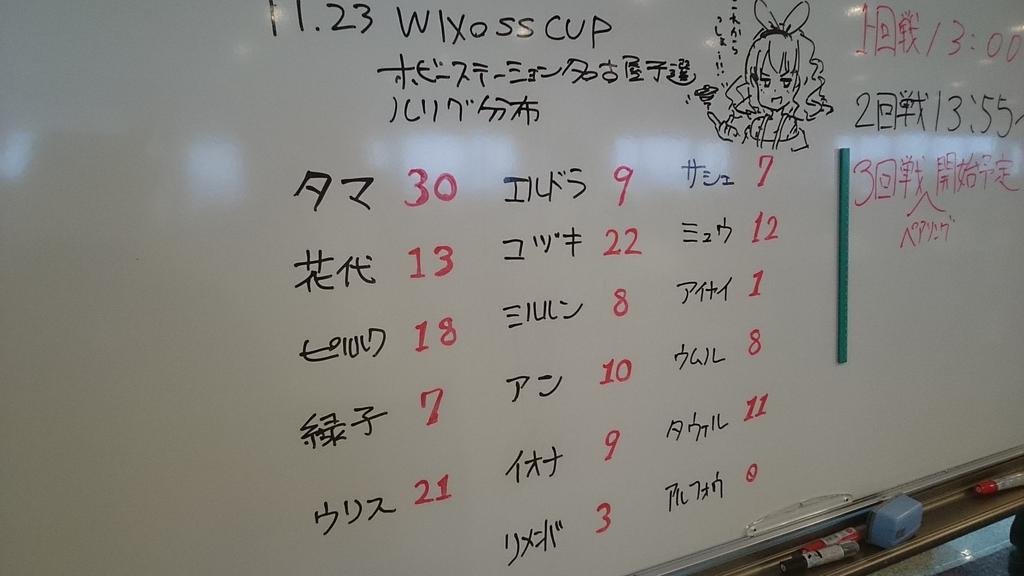 11.23 WIXOSS CUP
ホビーステーション名古屋予選
ルリグ分布
これから
っしょ…!!
タマ 30
花代 13
ピルルク 18
緑子 7
ウリス 21
エルドラ 9
ユヅキ 22
ミルルン 8
アン 10
イオナ 9
リメンバ 3
サシェ 7
ミュウ 12
アイヤイ 1
ウムル 8
タウィル 11
アルフォウ 0
1回戦 13:00
2回戦 13:55~
3回戦 開始予定
ペアリング